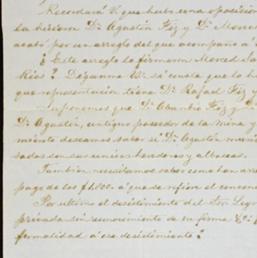 Recordará V. que hubo una oposición
la hicieron Dn. Agustín Fez y Dn. Moren
acabó por un arreglo del que acompaño á
¿Este arreglo lo firmaron Merced Sa
Rios? Díganme Vd. si consta que lo h
que representación tiene Dn. Rafael Fez y
Suponemos que Dn. Crambio Fez y
Dn. Agustín, antiguo poseedor de la mina y
miento deseamos saber si Dn. Agustín murió
sados son sus únicos herederos y albaceas.
También necesitamos saber como han arre
pago de los $1,000 á que se refiere el conveni
Por último el desistimiento del Sor. Leg
privado sin reconocimiento de su firma ¿
formalidad á ese desistimiento?